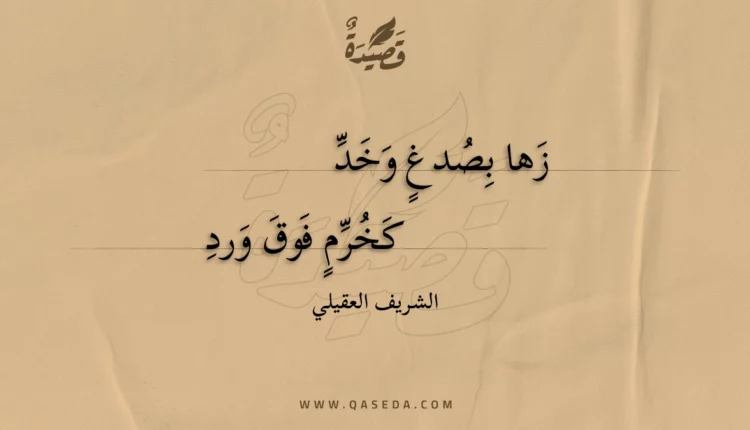 قَصِيدَةٌ
زَها بِصُدغٍ وَخَدِّ
كَخُرَّمٍ فَوقَ وَردِ
الشريف العقيلي
WWW.QASEDA.COM